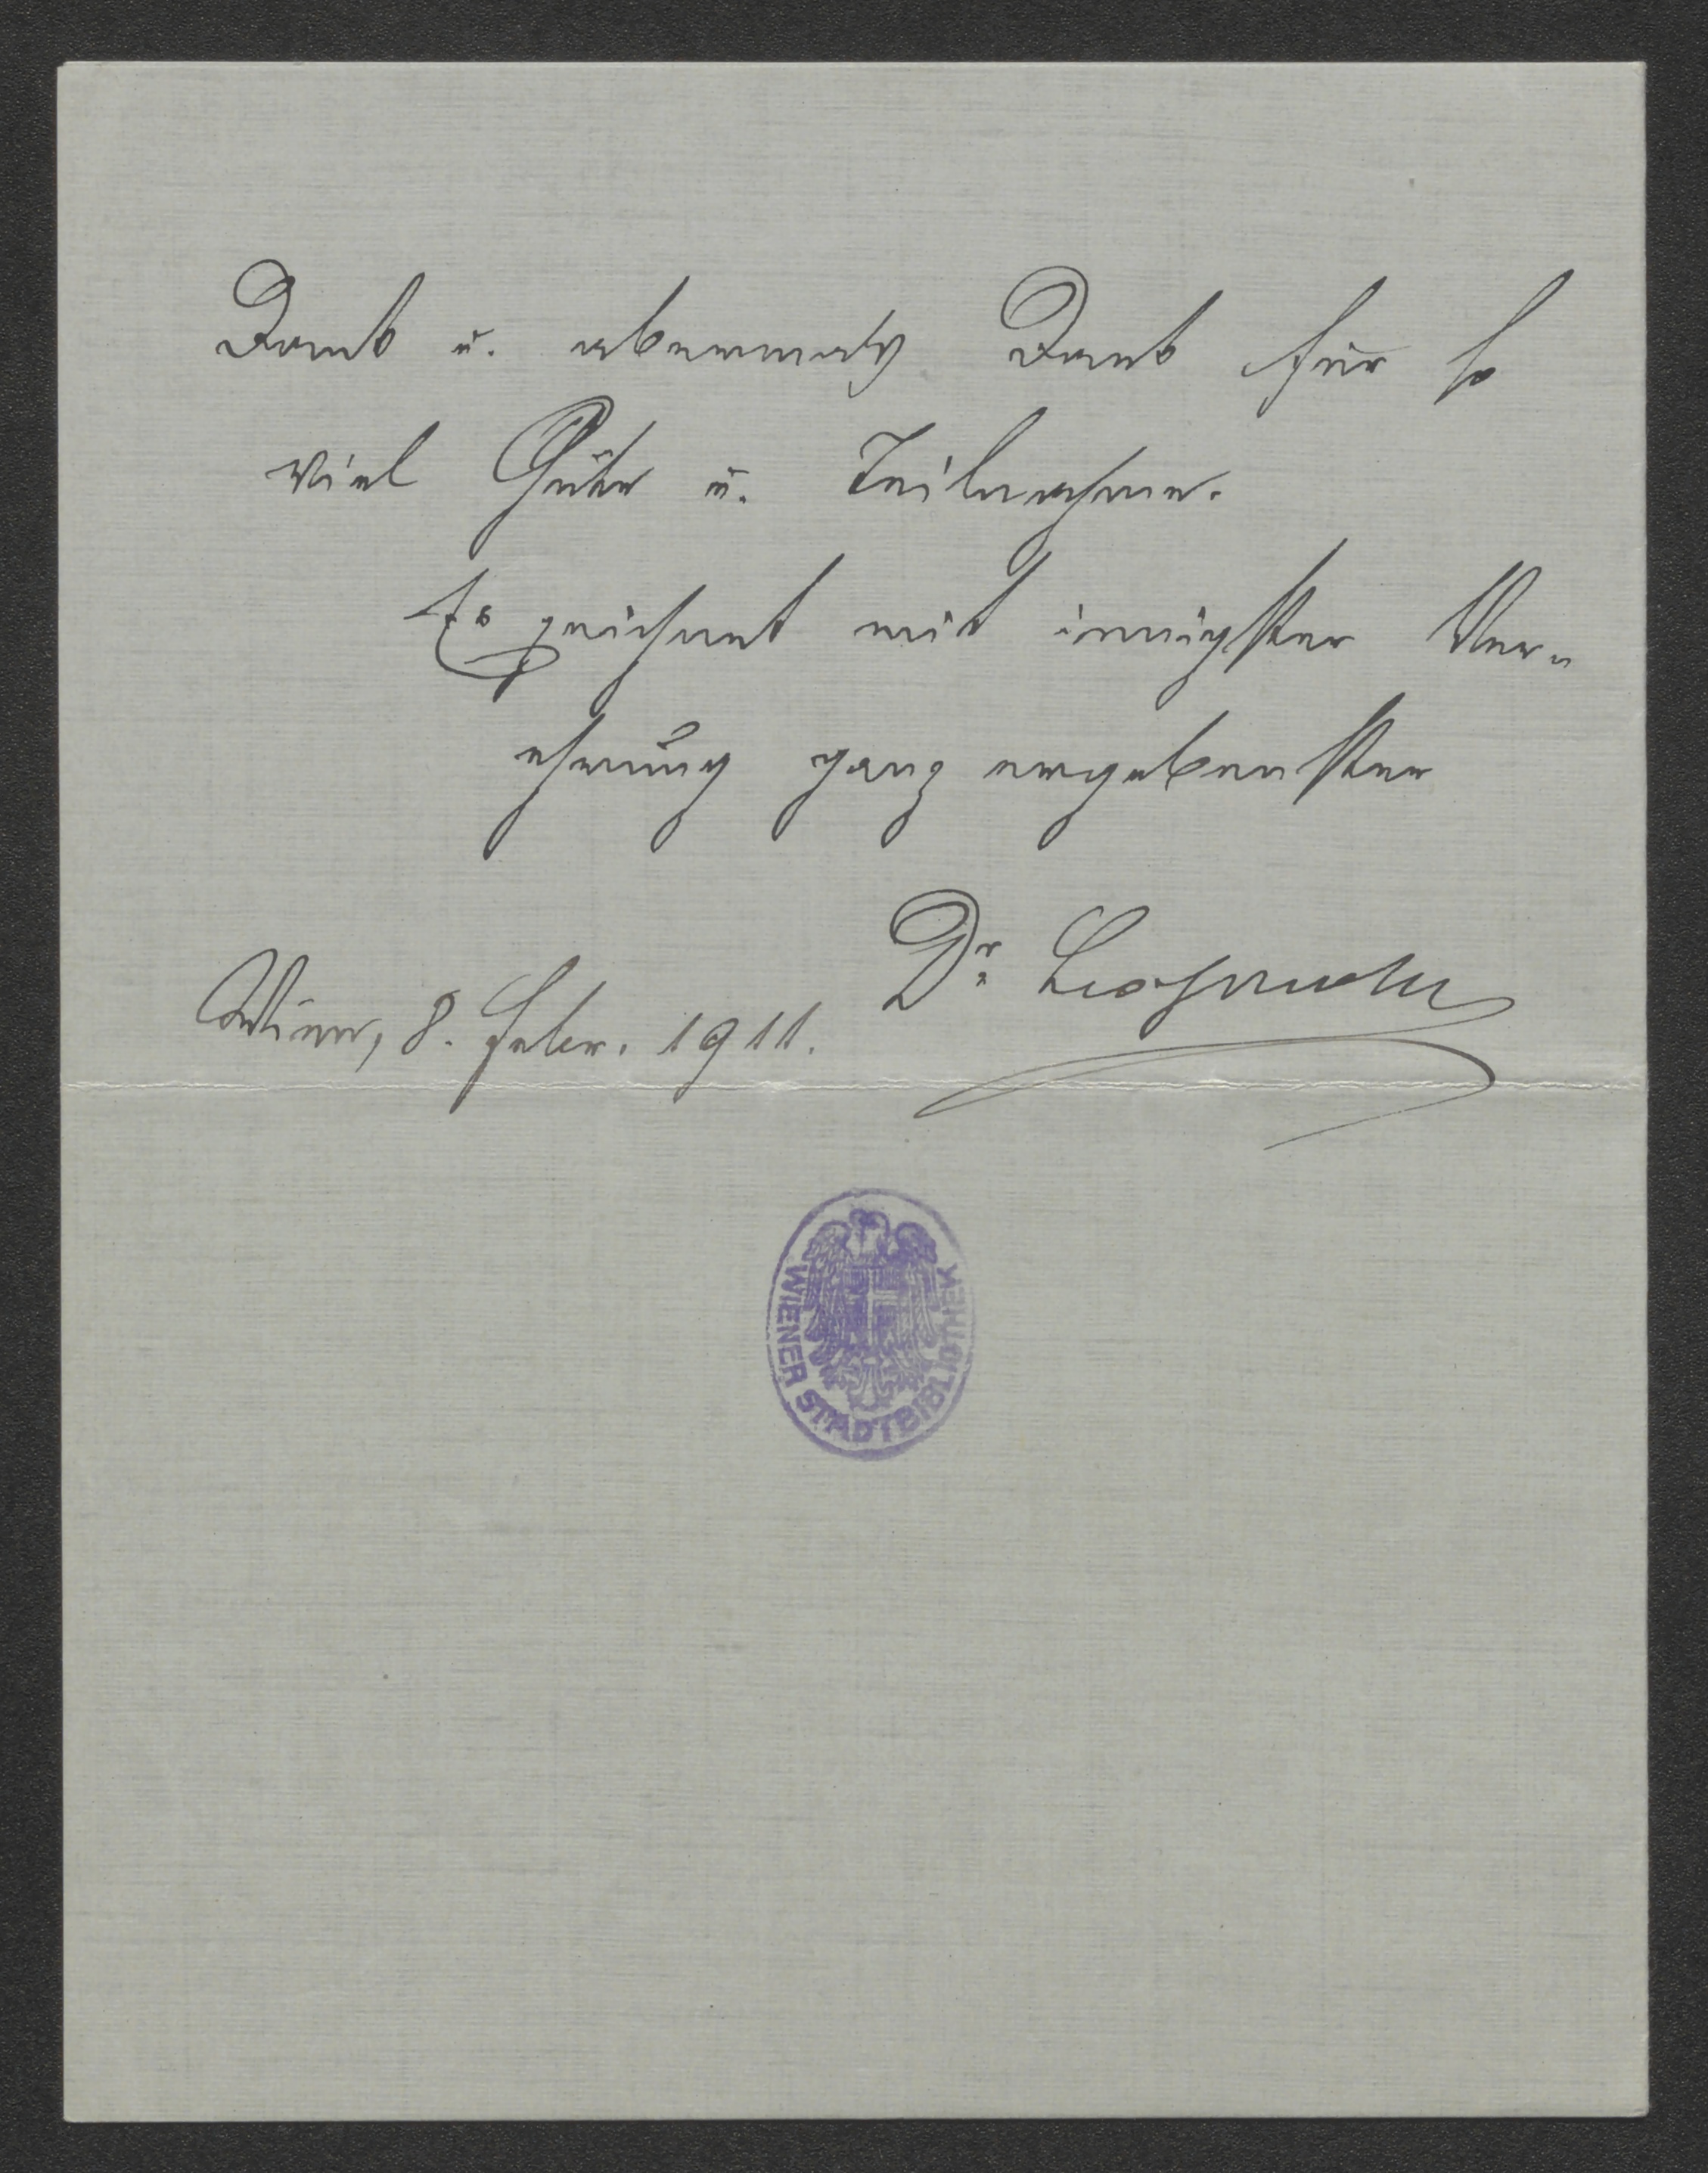 Dank u. abermals Dank für so
viel Güte u. Teilnahme.
Es zeichnet mit innigster Ver-
ehrung ganz ergebenster
Dr.
Wien, 8. Febr. 1911.
WIENER STADTBIBLIOTHEK